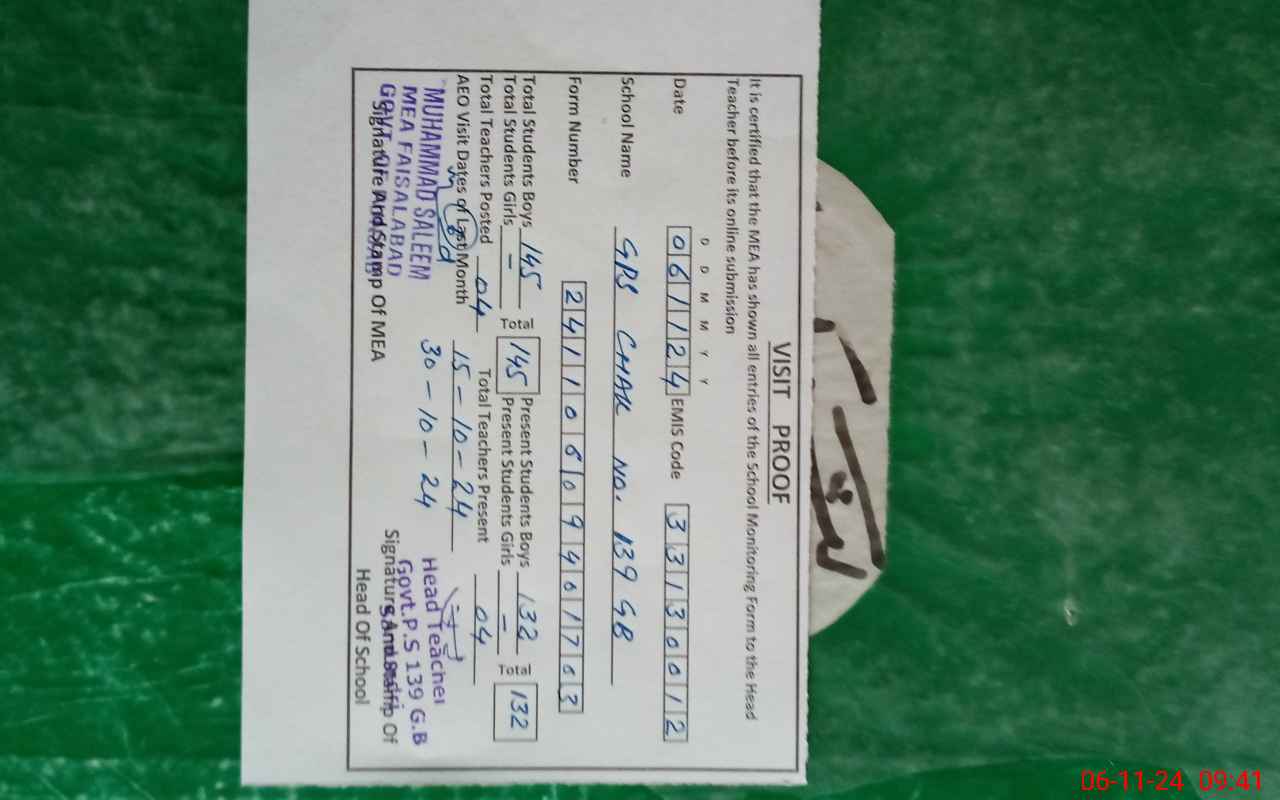 VISIT PROOF
It is certified that the MEA has shown all entries of the School Monitoring Form to the Head
Teacher before its online submission
D D M M Y Y
Date 061124 EMIS Code 33130012
School Name GPS CHAK NO. 139 GB
Form Number 24110609401703
Total Students Boys 145 Total 145 Present Students Boys 132 Total 132
Total Students Girls - Present Students Girls -
Total Teachers Posted 04 Total Teachers Present 04
AEO Visit Dates of Last Month 15-10-24
30-10-24
MUHAMMAD SALEEM
MEA FAISALABAD
GOVT. OF
Signature And Stamp Of MEA
Head Teacher
Govt.P.S 139 G.B
Signature And Stamp Of
Head Of School
06-11-24 09:41